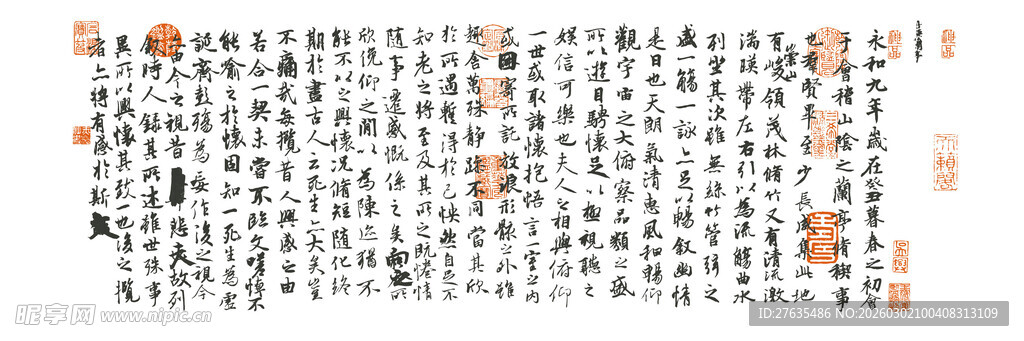 永和九年歲在癸丑暮春之初會
于會稽山陰之蘭亭脩稧事
也群賢畢至少長咸集此地
有崇山峻領茂林脩竹又有清流激
湍暎帶左右引以為流觴曲水
列坐其次雖無絲竹管弦之
盛一觴一詠亦足以暢敘幽情
是日也天朗氣清惠風和暢仰
觀宇宙之大俯察品類之盛
所以遊目騁懷足以極視聽之
娛信可樂也夫人之相與俯仰
一世或取諸懷抱悟言一室之內
或因寄所託放浪形骸之外雖
趣舍萬殊靜躁不同當其欣
於所遇暫得於己快然自足不
知老之將至及其所之既惓情
隨事遷感慨係之矣向之所
欣俛仰之間以為陳迹猶不
能不以之興懷況脩短隨化終
期於盡古人云死生亦大矣豈
不痛哉每攬昔人興感之由
若合一契未嘗不臨文嗟悼不
能喻之於懷固知一死生為虛
誕齊彭殤為妄作後之視今
亦由今之視昔悲夫故列
敘時人錄其所述雖世殊事
異所以興懷其致一也後之攬
者亦將有感於斯文
昵享网 www.nipic.cn
ID:27635486 NO:20260302100408313109